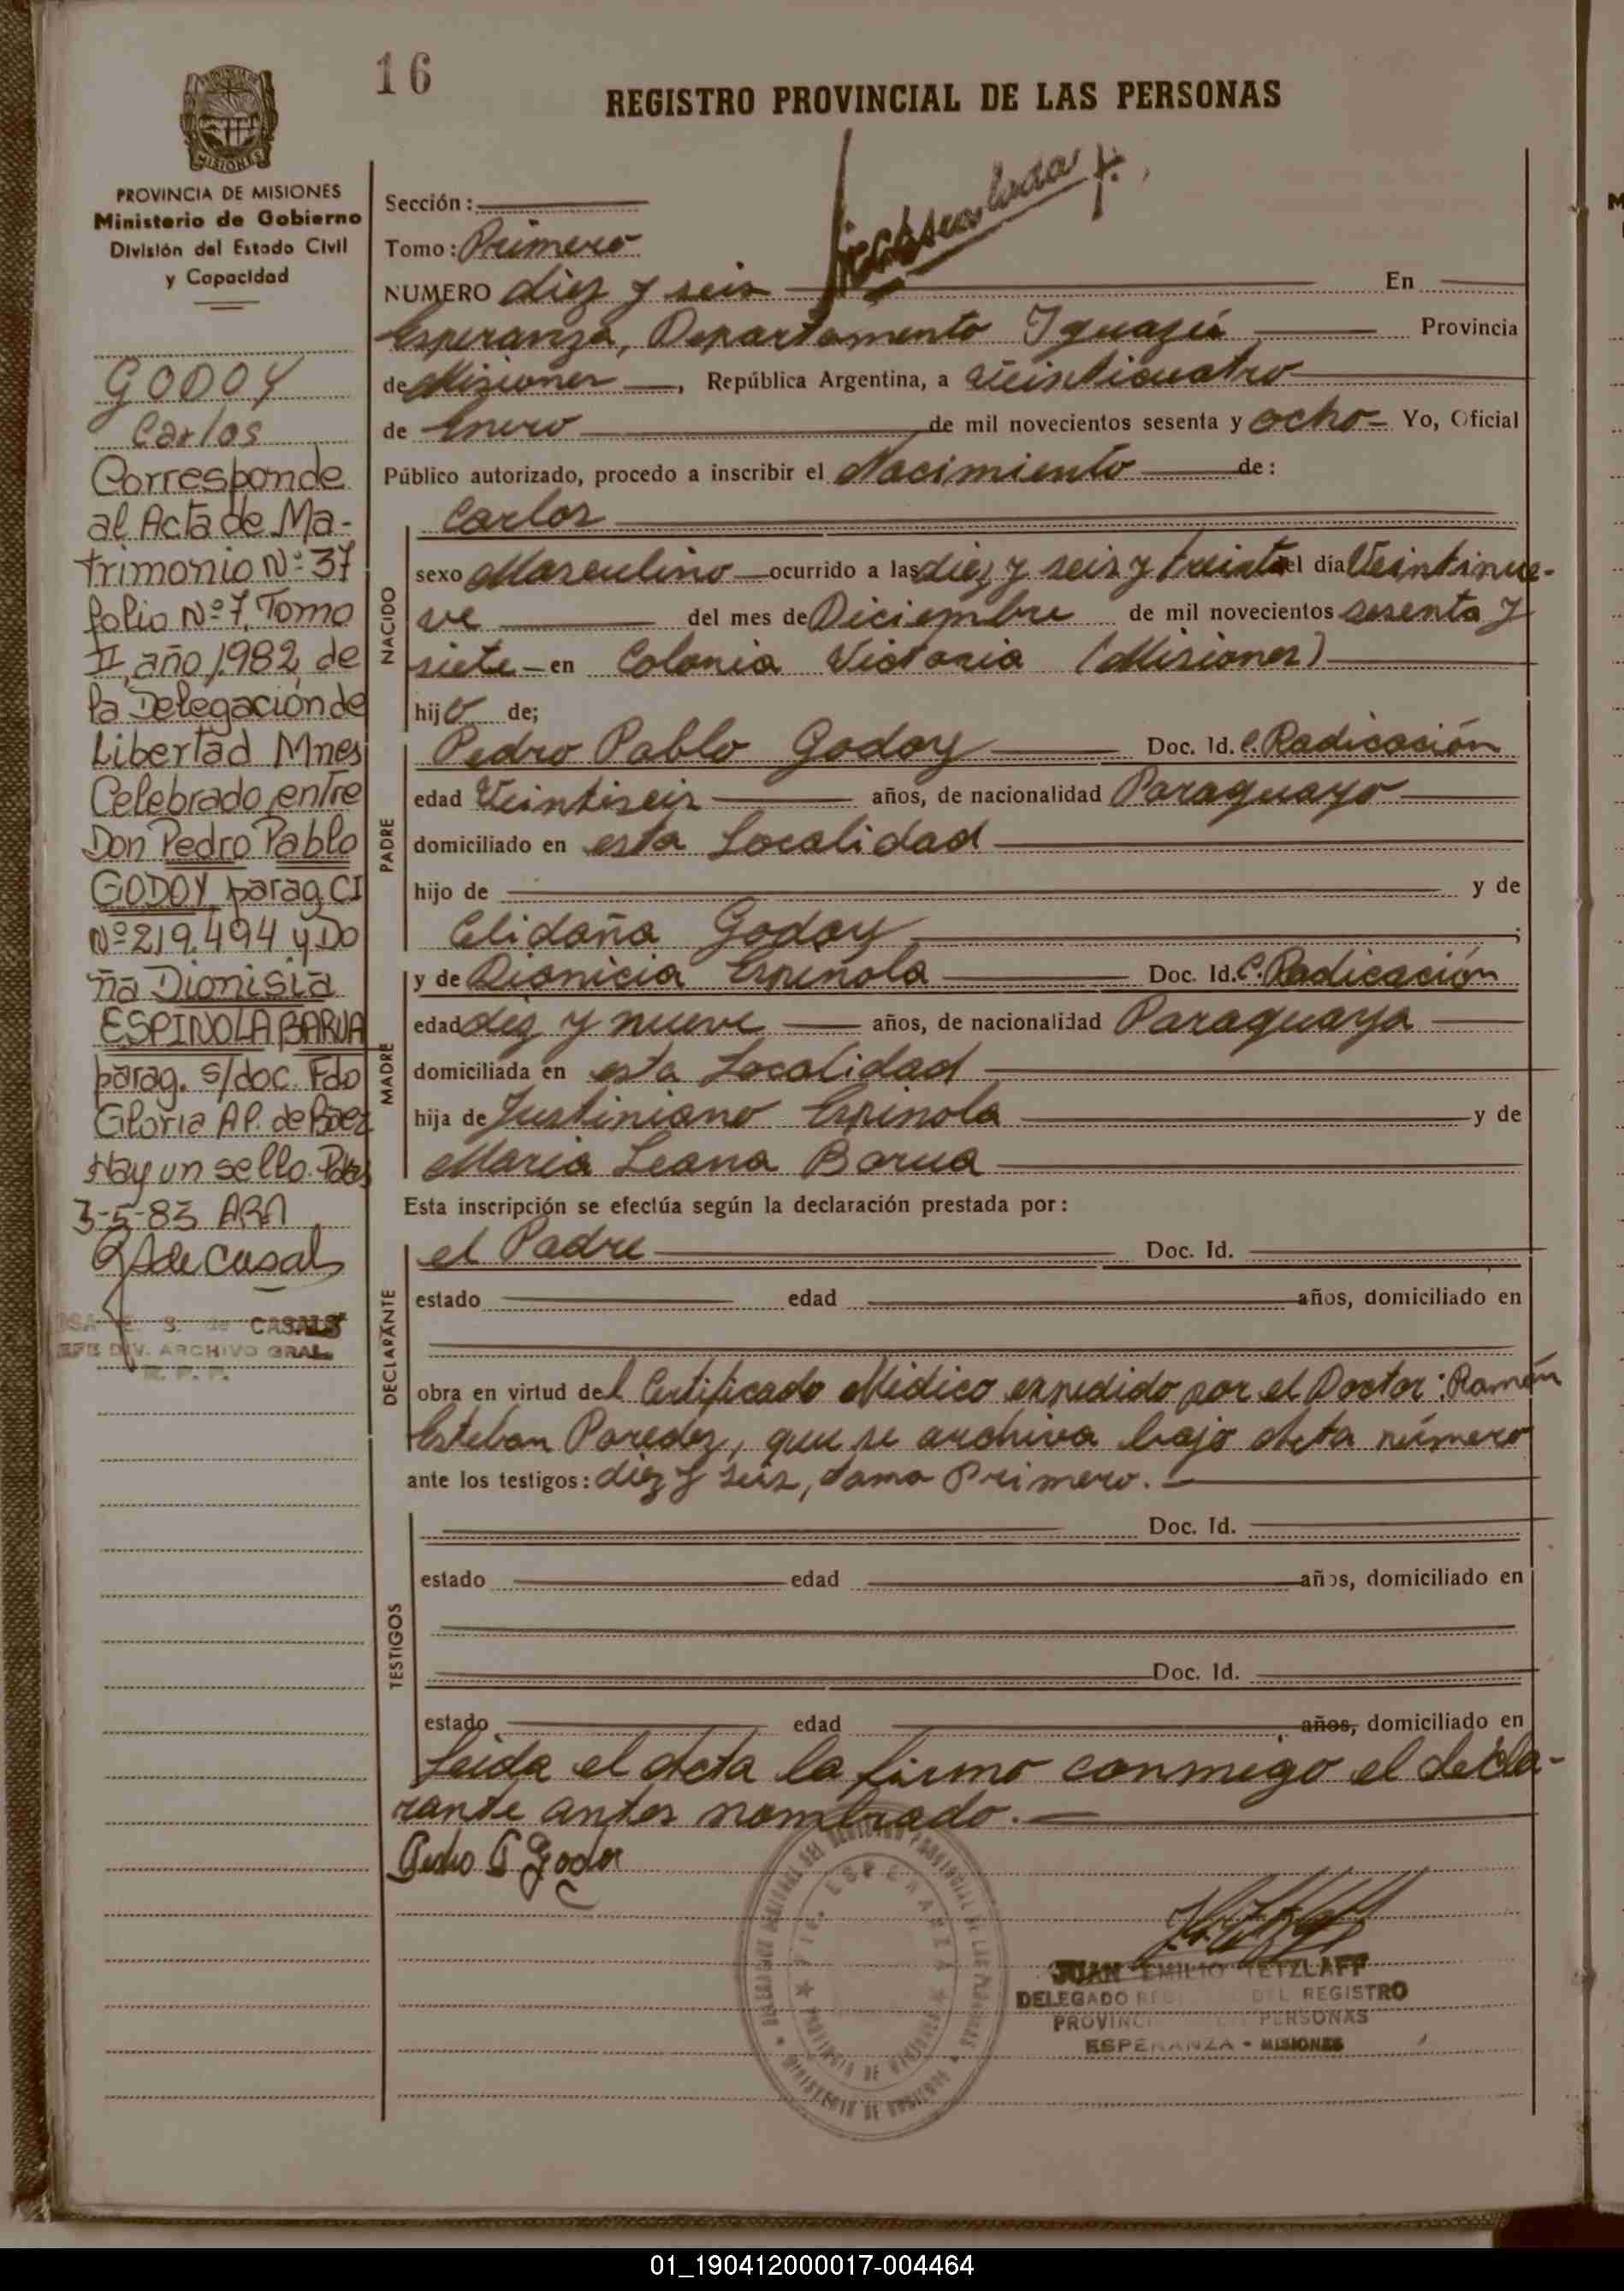 16
REGISTRO PROVINCIAL DE LAS PERSONAS
MISIONES
PROVINCIA DE MISIONES
Ministerio de Gobierno
División del Estado Civil
y Capacidad
GODOY
Carlos
Corresponde
al Acta de Ma-
trimonio Nº 37
folio Nº 7, Tomo
II, año 1982, de
la Delegación de
Libertad Mnes
Celebrado entre
Don Pedro Pablo
GODOY parag. CI
Nº 219.494 y Do
ña Dionisia
ESPINOLA BARUA
parag. s/doc. Fdo
Gloria A P. de Báez
Hay un sello. Pdas
3-5-83 ARA
de Casals
E. S. de CASALS
JEFE DIV. ARCHIVO GRAL.
R. P. P.
Sección:
Tomo: Primero
NUMERO diez y seis En
Esperanza, Departamento Iguazú Provincia
de Misiones, República Argentina, a Veinticuatro
de Enero de mil novecientos sesenta y ocho Yo, Oficial
Público autorizado, procedo a inscribir el Nacimiento de:
NACIDO
Carlos
sexo Masculino ocurrido a las diez y seis y treinta el día Veintinue-
ve del mes de Diciembre de mil novecientos sesenta y
siete en Colonia Victoria (Misiones)
hijo de;
PADRE
Pedro Pablo Godoy Doc. Id. C. Radicación
edad Veintiseis años, de nacionalidad Paraguayo
domiciliado en esta Localidad
hijo de y de
Elidaña Godoy ;
MADRE
y de Dionicia Espinola Doc. Id. C. Radicación
edad diez y nueve años, de nacionalidad Paraguaya
domiciliada en esta Localidad
hija de Justiniano Espinola y de
Maria Leana Barua
Esta inscripción se efectúa según la declaración prestada por:
DECLARANTE
el Padre Doc. Id.
estado edad años, domiciliado en
obra en virtud del Certificado Médico expedido por el Doctor: Ramón
Esteban Paredez, que se archiva bajo Acta número
ante los testigos: diez y seis, tomo Primero.
TESTIGOS
Doc. Id.
estado edad años, domiciliado en
Doc. Id.
estado edad años, domiciliado en
Leida el Acta la firmo conmigo el decla-
rante antes nombrado.
Pedro P Godoy
JUAN EMILIO TETZLAFF
DELEGADO DEL REGISTRO
PROVINCIAL PERSONAS
ESPERANZA - MISIONES
ESPERANZA
PROVINCIA DE MISIONES
MINISTERIO DE GOBIERNO
01_190412000017-004464